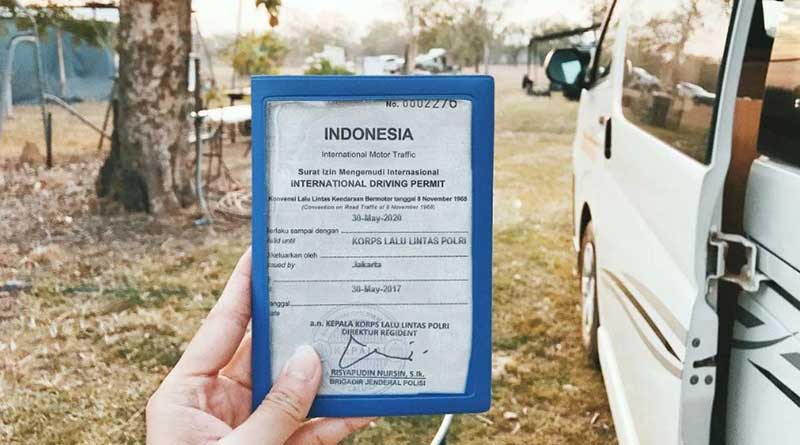 No. 0002276
INDONESIA
International Motor Traffic
Surat Izin Mengemudi Internasional
INTERNATIONAL DRIVING PERMIT
Konvensi Lalu Lintas Kendaraan Bermotor tanggal 8 November 1968
(Convention on Road Traffic of 8 November 1968)
30-May-2020
Berlaku sampai dengan
Valid until
KORPS LALU LINTAS POLRI
Dikeluarkan oleh
Issued by
Jakarta
30-May-2017
a.n. KEPALA KORPS LALU LINTAS POLRI
DIREKTUR REGIDENT
RISYAPUDIN NURSIN, S.Ik.
BRIGADIR JENDERAL POLISI